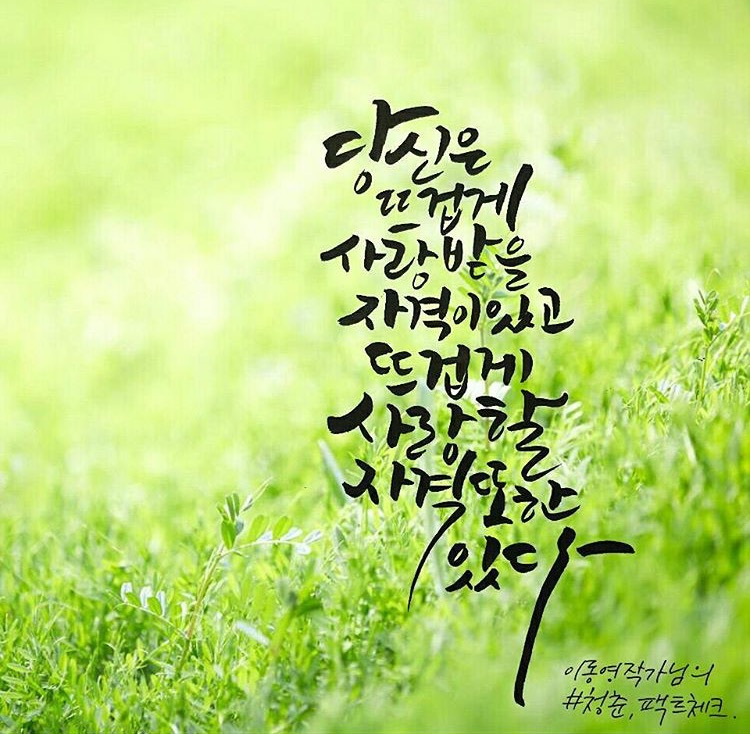 당신은
뜨겁게
사랑받을
자격이있고
뜨겁게
사랑할
자격또한
있다
이동영작가님의
#청춘, 팩트체크.